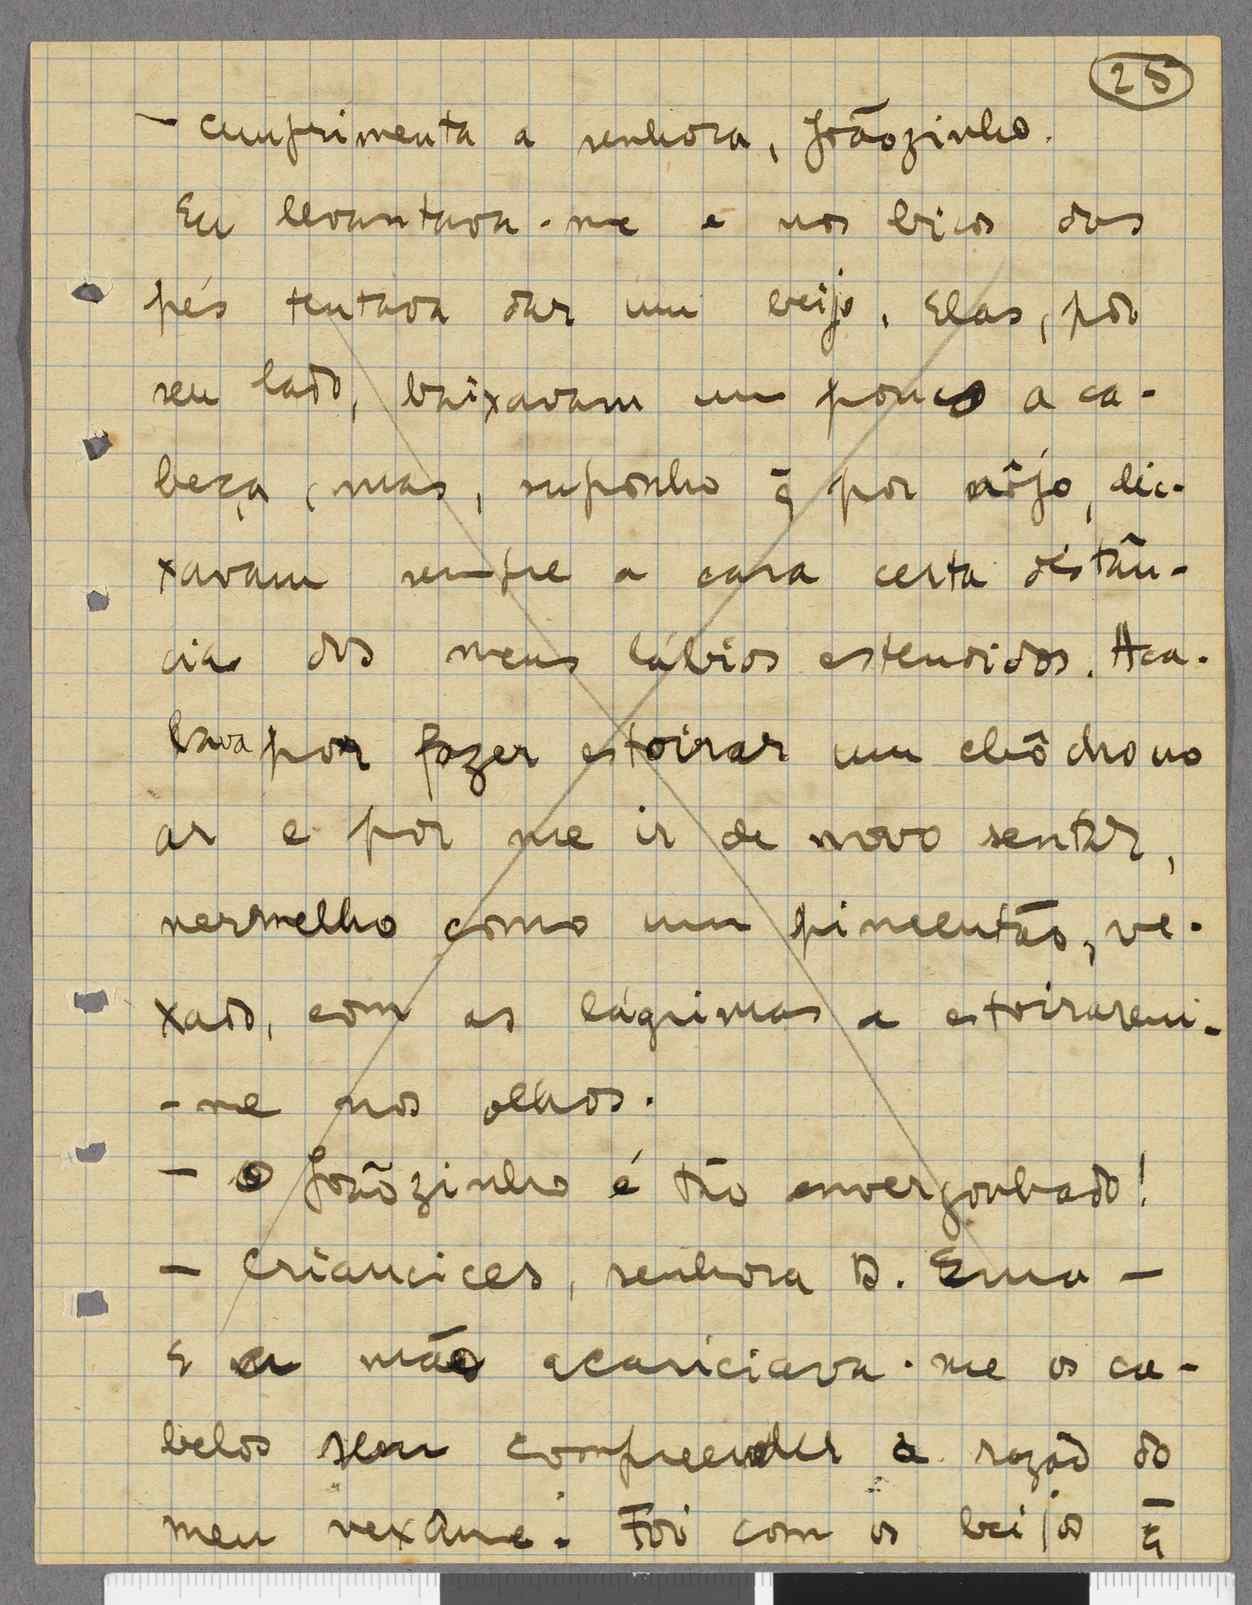 25
- Cumprimenta a senhora, Joãozinho.
Eu levantava-me e nos bicos dos
pés tentava dar um beijo. Elas, por
seu lado, baixavam um pouco a ca-
beça, mas, suponho q̃ por nôjo, dei-
xavam sempre a cara certa distân-
cia dos meus lábios estendidos. Aca-
bava por fazer estoirar um chôcho no
ar e por me ir de novo sentar,
vermelho como um pimentão, ve-
xado, com as lágrimas a estoirarem-
-me nos olhos.
- O Joãozinho é tão envergonhado!
- Criancices, senhora D. Ema -
E a mão acariciava-me os ca-
belos sem compreender a razão do
meu vexame. Foi com os beijos q̃